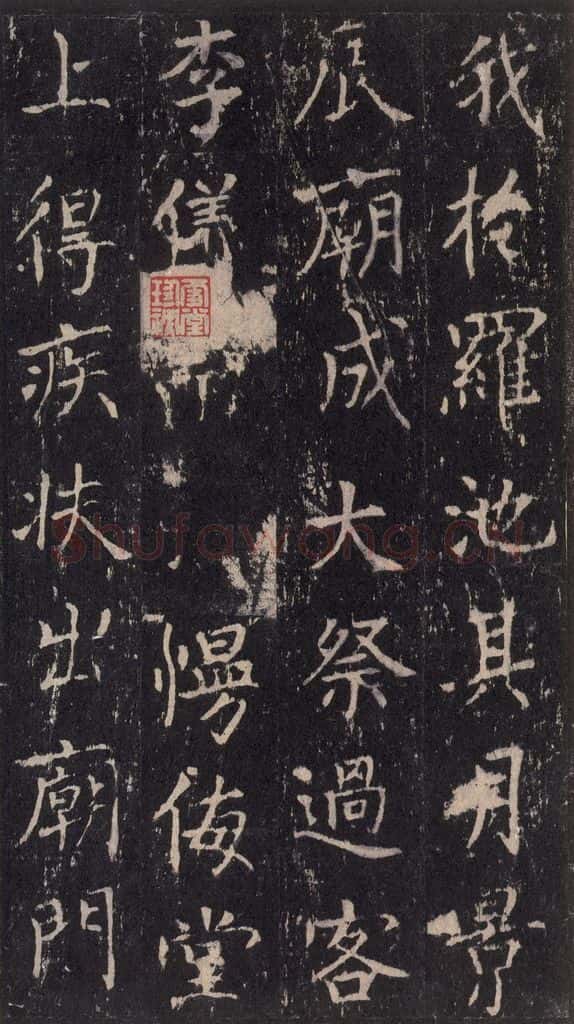 我扵羅池其月景
辰廟成大祭過客
李儀慢侮堂
上得疾扶出廟門
Shufawang.CN